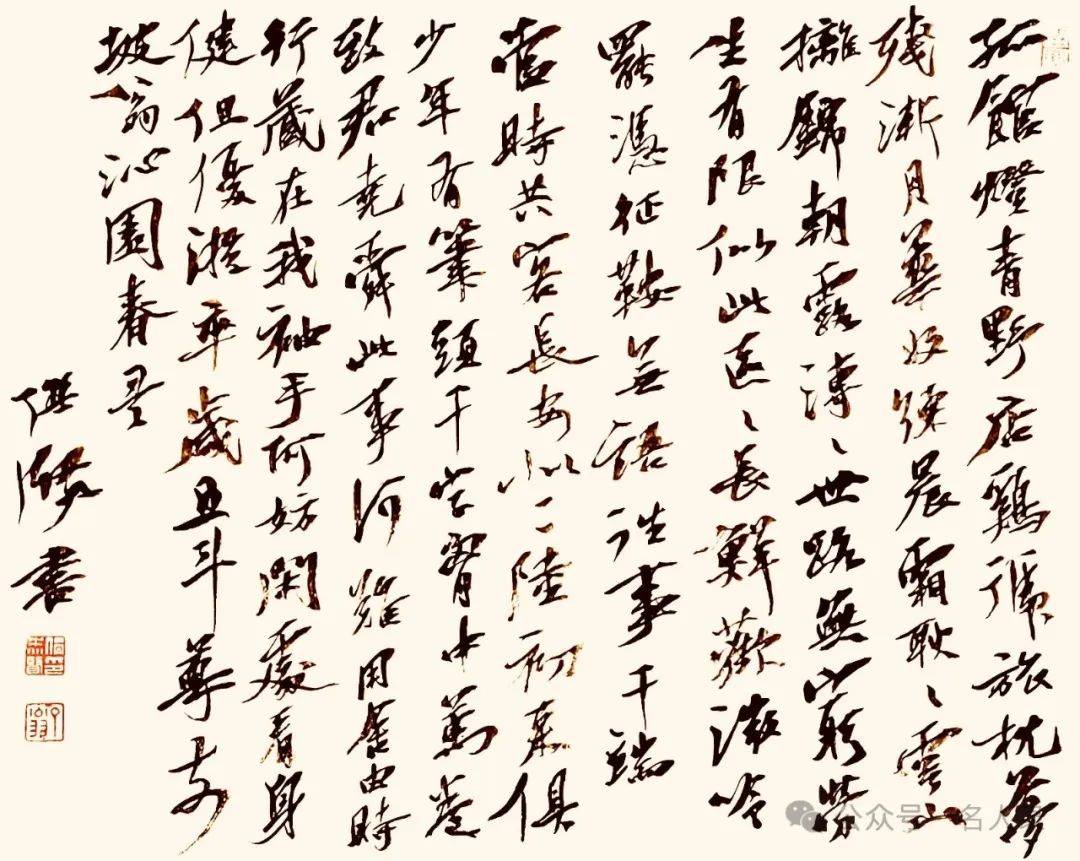 孤館燈青野店鷄號旅枕夢
殘漸月華收練晨霜耿〻雲山
摛錦朝露漙〻世路無窮勞
生有限似此區〻長鮮歡微吟
罷憑征鞍無語往事千端
當時共客長安似二陸初來俱
少年有筆頭千字胷中萬卷
致君堯舜此事何難用舍由時
行藏在我袖手何妨閑處看身
健但優游卒歲且斗尊前
坡翁沁園春
書
公众号 名人